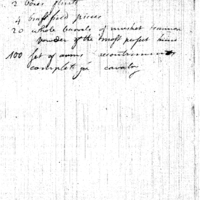 2 boxes flints
4 brass field pieces
20 whole barrels of musket common
powder of the most perfect kind
100 set of arms accoutrements
complete for cavalry